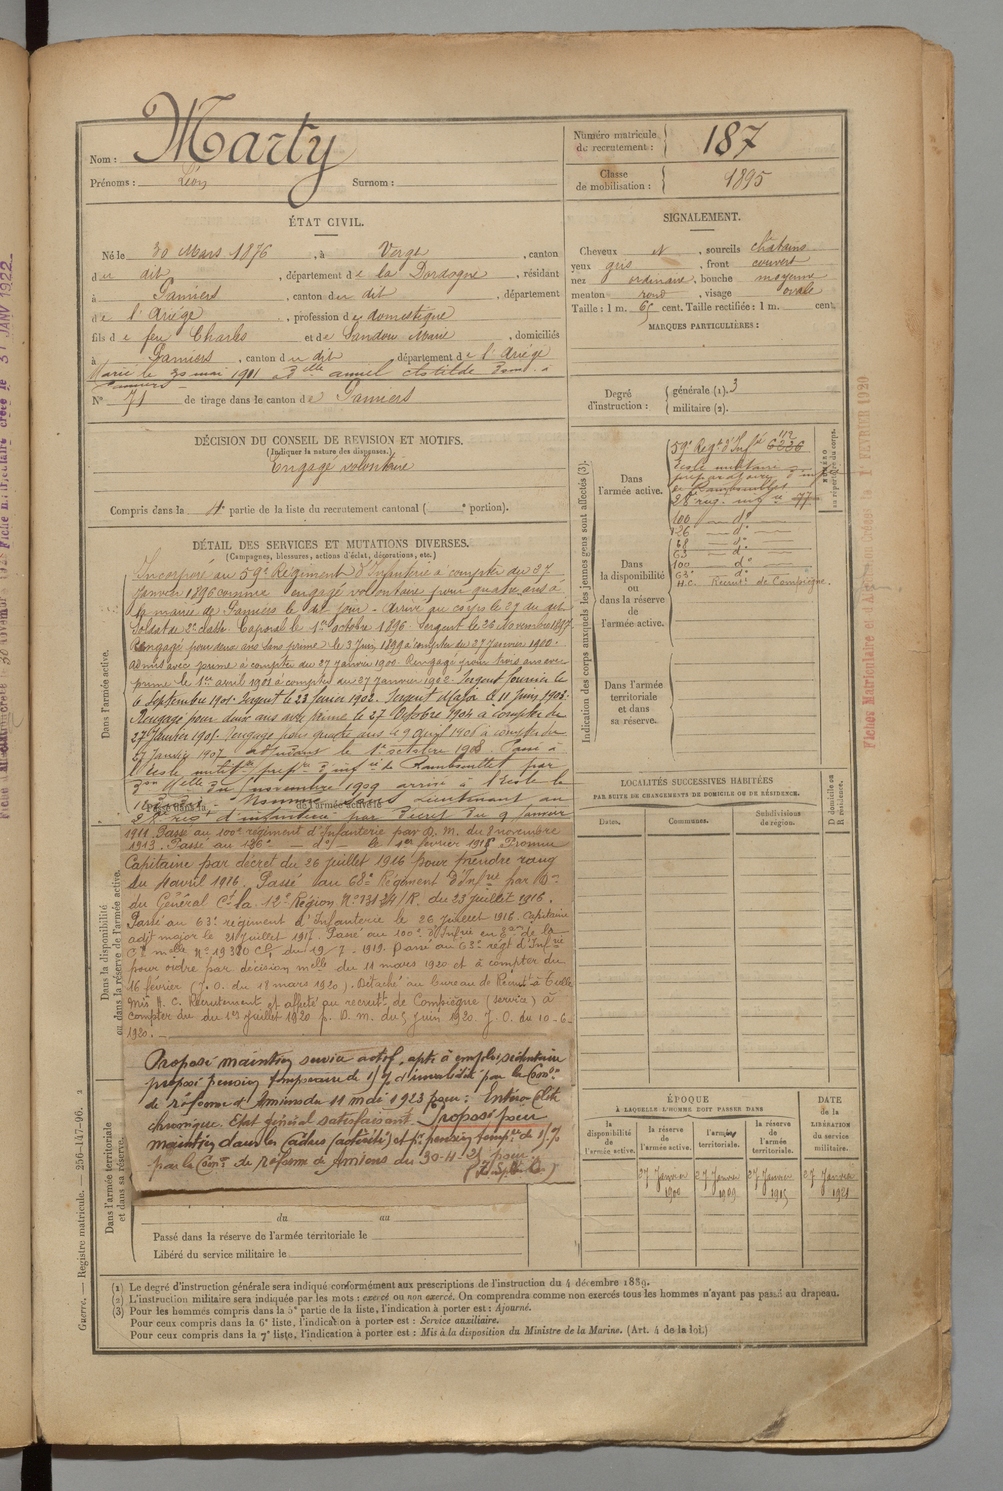 Nom : Marty
Prénoms : Léon Surnom :
Numéro matricule de recrutement : 187
Classe de mobilisation : 1895
ÉTAT CIVIL.
Né le 30 Mars 1876, à Verge, canton
du dit, département de la Dordogne, résidant
à Pamiers, canton du dit, département
de l'Ariège, profession de domestique
fils de feu Charles et de Sandou Marie, domiciliés
à Pamiers, canton du dit département de l'Ariège
Marié le 30 mai 1901 à Delle
Pamiers
N° 71 de tirage dans le canton de Pamiers
SIGNALEMENT.
Cheveux N, sourcils châtains
yeux gris, front couvert
nez ordinaire, bouche moyenne
menton rond, visage ovale
Taille : 1 m. 65 cent. Taille rectifiée : 1 m. cent.
MARQUES PARTICULIÈRES :
Degré d'instruction : générale (1). 3
militaire (2).
DÉCISION DU CONSEIL DE REVISION ET MOTIFS.
(Indiquer la nature des dispenses.)
Engagé volontaire
Compris dans la 4e partie de la liste du recrutement cantonal ( e portion).
DÉTAIL DES SERVICES ET MUTATIONS DIVERSES.
(Campagnes, blessures, actions d'éclat, décorations, etc.)
Dans l'armée active.
Incorporé au 59e Régiment d'Infanterie à compter du 27
Janvier 1896 comme engagé volontaire pour quatre ans à
la mairie de Pamiers le dit jour - Arrivé au corps le 27 du dit
Soldat de 2e classe. Caporal le 1er octobre 1896. Sergent le 26 Novembre 1897
Rengagé pour deux ans sans prime le 3 Juin 1899 à compter du 27 Janvier 1900.
Admis avec prime à compter du 27 Janvier 1900. Rengagé pour trois ans avec
prime le 1er avril 1901 à compter du 27 Janvier 1902. Sergent fourrier le
6 Septembre 1901. Sergent le 23 février 1902. Sergent Major le 11 Juin 1903.
Rengagé pour deux ans avec prime le 27 Octobre 1904 à compter du
27 Janvier 1905. Rengagé pour quatre ans le 9 à compter du
27 Janvier 1907. Adjudant le 1er octobre 1908. Passé à
l'école militre prépre d'infie de Rambouillet par
Don Melle du novembre 1909 arrivé à l'école le
Nommé sous lieutenant au
régt d'infanterie par décret du 9 Janvier
Dans la disponibilité ou dans la réserve de l'armée active.
1911. Passé au 100e régiment d'Infanterie par D. M. du 8 novembre
1913. Passé au 126e — do — le 1er février 1915 Promu
Capitaine par décret du 26 juillet 1916 pour prendre rang
du 4 avril 1916. Passé au 68e Régiment d'Infrie par Don
du Général Ct la 12e Région du 23 Juillet 1916.
Passé au 63e régiment d'Infanterie le 26 Juillet 1916. Capitaine
adjt major le 21 Juillet 1917. Passé au 100e d'Infrie en Son de la
Cre melle N° 19380 du 19-7-1919. Passé au 63e régt d'Infrie
pour ordre par décision melle du 11 mars 1920 et à compter du
16 février (J. O. du 18 mars 1920). Détaché au bureau de Recrut à Tulle
Mis H. C. Recrutement et affecté au recrutt de Compiègne (service) à
compter du du 1er Juillet 1920 p. D. M. du 5 Juin 1920. J. O. du 10-6-
1920.
Dans l'armée territoriale et dans sa réserve.
Proposé maintien service actif, apte à emploi sédentaire
proposé pension temporaire de 15 % d'invalidité par la Comon
de réforme d'Amiens du 11 mai 1923 pour : Entéro-Colite
chronique. Etat général satisfaisant. Proposé pour
maintien dans les Cadres (activité) et pr pension tempre de 15 %
par la Comon de réforme de Amiens du 30-4-25 pour :
du au
Passé dans la réserve de l'armée territoriale le
Libéré du service militaire le
Indication des corps auxquels les jeunes gens sont affectés (3).
NUMÉRO au répertoire du corps.
Dans l'armée active.
59e Régt d'Infie 112 6236
École militaire
préparatoire d'infie
de Rambouillet
régt infie 77
Dans la disponibilité ou dans la réserve de l'armée active.
100 — do —
126 — do —
68 — do —
63 — do —
100 — do —
63e do
H.C. Recrutt de Compiègne.
Dans l'armée territoriale et dans sa réserve.
LOCALITÉS SUCCESSIVES HABITÉES
PAR SUITE DE CHANGEMENTS DE DOMICILE OU DE RÉSIDENCE.
Dates. Communes. Subdivisions de région. D domicile ou R résidence.
ÉPOQUE
À LAQUELLE L'HOMME DOIT PASSER DANS
DATE de la LIBÉRATION du service militaire.
la disponibilité de l'armée active.
la réserve de l'armée active.
l'armée territoriale.
la réserve de l'armée territoriale.
27 Janvier 1900
27 Janvier 1909
27 Janvier 1915
27 Janvier 1921
(1) Le degré d'instruction générale sera indiqué conformément aux prescriptions de l'instruction du 4 décembre 1889.
(2) L'instruction militaire sera indiquée par les mots : exercé ou non exercé. On comprendra comme non exercés tous les hommes n'ayant pas passé au drapeau.
(3) Pour les hommes compris dans la 5e partie de la liste, l'indication à porter est : Ajourné.
Pour ceux compris dans la 6e liste, l'indication à porter est : Service auxiliaire.
Pour ceux compris dans la 7e liste, l'indication à porter est : Mis à la disposition du Ministre de la Marine. (Art. 4 de la loi.)
Guerre. — Registre matricule. — 256-147-96. 2
Fiches Matriculaire et d'Affectation Créées le 1er FEVRIER 1929
Fiche Matriculaire créée le 31 JANV 1922